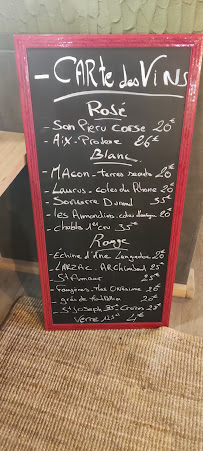 - CARTE des VINS
Rosé
- San Pieru Corse 20€
- Aix. Provence 26€
Blanc
- MAcon - terres secrete 20€
- Laurus - cotes du Rhone 20€
- Sancerre Durand 35€
- les Amandiers
- Chablis 1er cru 35€
Rouge
- Echine d'âne Languedoc 20€
- LARZAC - ARChimbaud 25€
- St Amour 25€
- Faugères - Mas ONésime 26€
- grès de 26€
- St Joseph 35€ Crozes 25€
Verre 4€